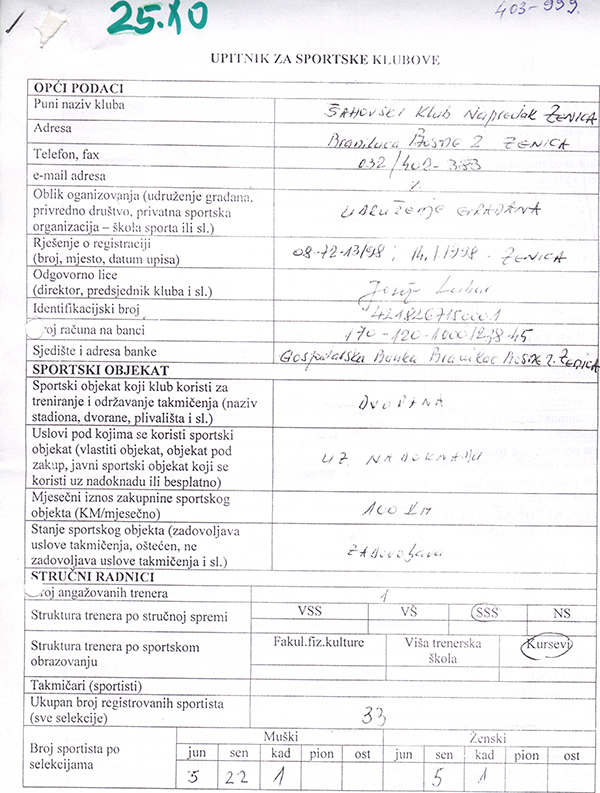 25.10
403-999.
UPITNIK ZA SPORTSKE KLUBOVE
OPĆI PODACI
Puni naziv kluba ŠAHOVSKI Klub Napredak ZENICA
Adresa Branilaca Bosne 2 ZENICA
Telefon, fax
e-mail adresa
Oblik oganizovanja (udruženje građana, privredno društvo, privatna sportska organizacija – škola sporta ili sl.) UDRUŽENJE GRAĐANA
Rješenje o registraciji
(broj, mjesto, datum upisa) 08-72-13/98 ; 14.1.1998 - ZENICA
Odgovorno lice
(direktor, predsjednik kluba i sl.) Josip
Identifikacijski broj
roj računa na banci
Sjedište i adresa banke Gospodarska Banka Bosne 2. ZENICA
SPORTSKI OBJEKAT
Sportski objekat koji klub koristi za
treniranje i održavanje takmičenja (naziv
stadiona, dvorane, plivališta i sl.) DVORANA
Uslovi pod kojima se koristi sportski
objekat (vlastiti objekat, objekat pod
zakup, javni sportski objekat koji se
koristi uz nadoknadu ili besplatno) UZ NADOKNADU
Mjesečni iznos zakupnine sportskog
objekta (KM/mjesečno) 100 KM
Stanje sportskog objekta (zadovoljava
uslove takmičenja, oštećen, ne
zadovoljava uslove takmičenja i sl.) ZADOVOLJAVA
STRUČNI RADNICI
roj angažovanih trenera 1
Struktura trenera po stručnoj spremi VSS VŠ SSS NS
Struktura trenera po sportskom
obrazovanju Fakul.fiz.kulture Viša trenerska
škola Kursevi
Takmičari (sportisti)
Ukupan broj registrovanih sportista
(sve selekcije) 33
Broj sportista po
selekcijama Muški Ženski
jun sen kad pion ost jun sen kad pion ost
5 22 1 5 1